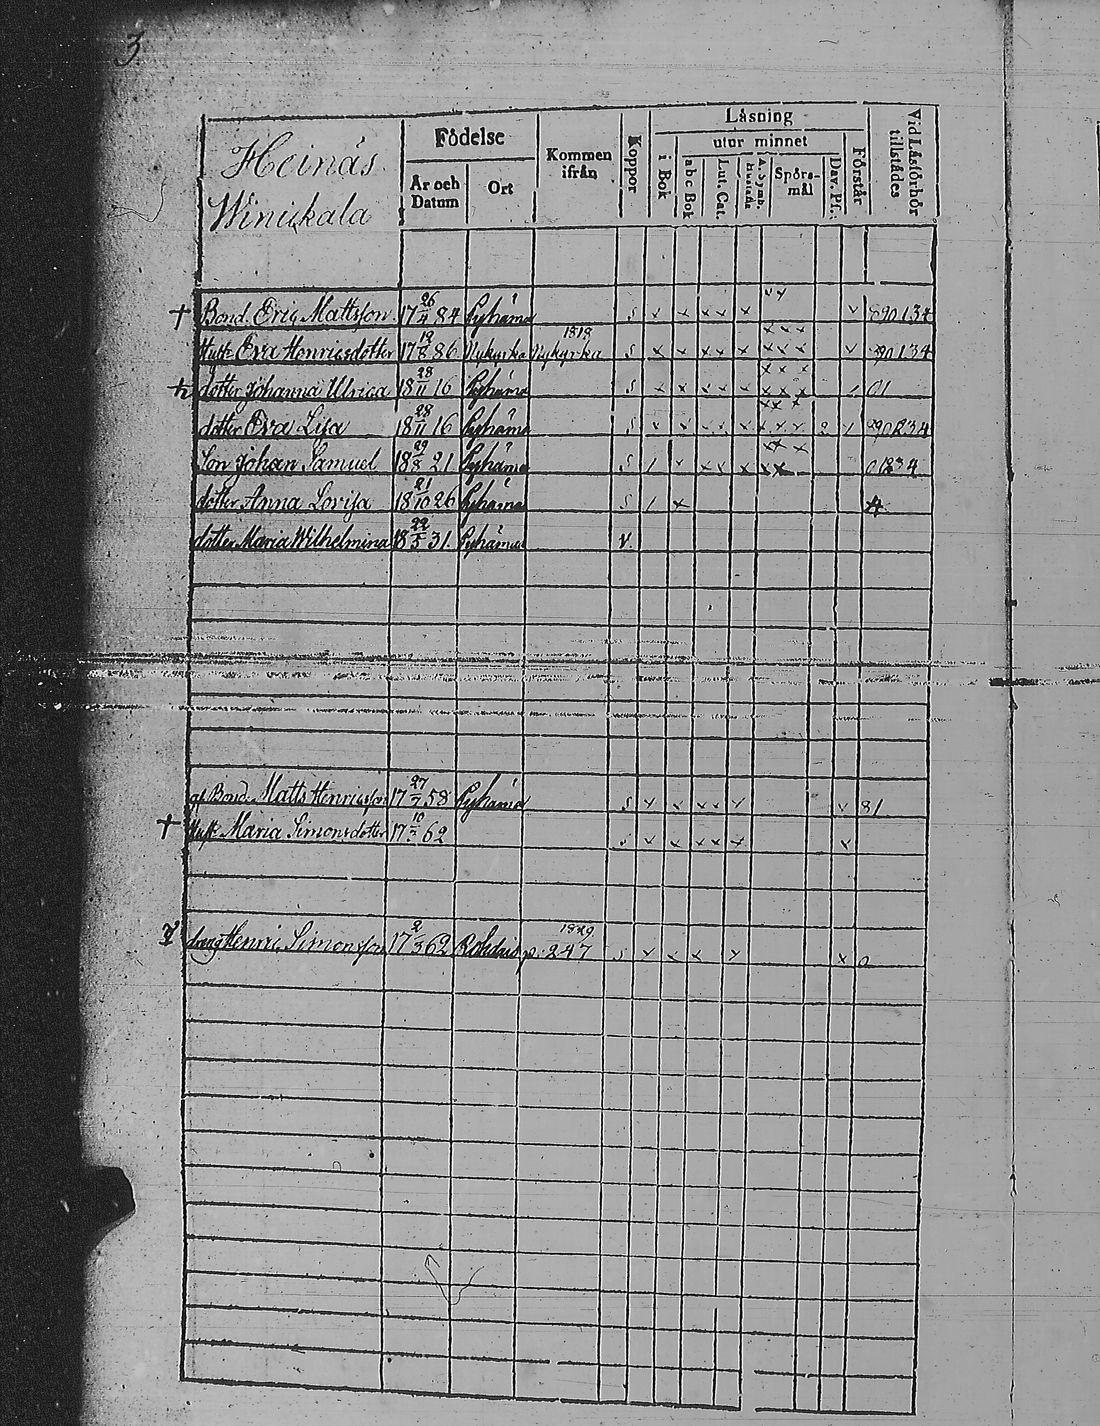 3
Heinäs
Winickala
Födelse
År och Datum
Ort
Kommen ifrån
Koppor
Läsning
i Bok
utur minnet
abc Bok
Lut. Cat.
A. Symb. Hustafla
Spörs-mål
Dav. Ps.
Förstår
Vid Läsförhör tillstädes
† Bond. Eric Mattsson 17 26/4 84 Pyhäma s x x x x x v 890134
Hust. Eva Henricsdotter 17 19/8 86 Nykyrka 1818 Nykyrka s x x x x x x x x v 90134
dotter Johanna Ulrica 18 28/11 16 Pyhäma s x x x x x x x x 01
dotter Eva Lisa 18 28/11 16 Pyhäma s x x x x x x x x 2 90234
Son Johan Samuel 18 29/8 21 Pyhäma s / x x x x x x 01834
dotter Anna Lovisa 18 21/10 26 Pyhäma s / x 4
dotter Maria Wilhelmina 18 22/5 31. Pyhäma v.
gl Bond. Matts Henricsson 17 27/7 58 Pyhäma s x x x x x v 81
† Hust. Maria Simonsdotter 17 10/3 62 s x x x x x x
dräng Henric Simonsson 17 2/3 62 1829 p. 247 s x x x x x 0